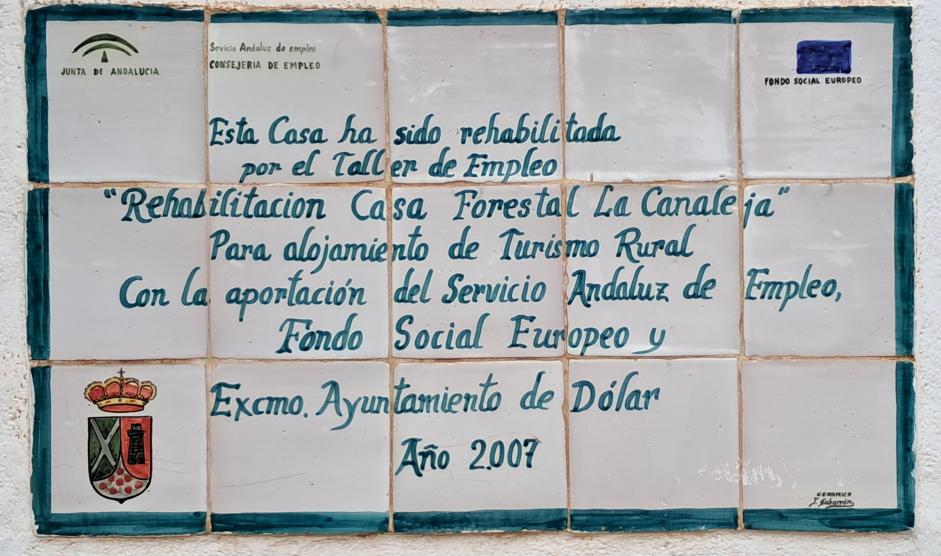 JUNTA DE ANDALUCIA
Servicio Andaluz de empleo
CONSEJERIA DE EMPLEO
FONDO SOCIAL EUROPEO
Esta Casa ha sido rehabilitada
por el Taller de Empleo
"Rehabilitacion Casa Forestal La Canaleja"
Para alojamiento de Turismo Rural
Con la aportación del Servicio Andaluz de Empleo,
Fondo Social Europeo y
Excmo. Ayuntamiento de Dólar
Año 2.007
CERAMICA
J. Gabarrón